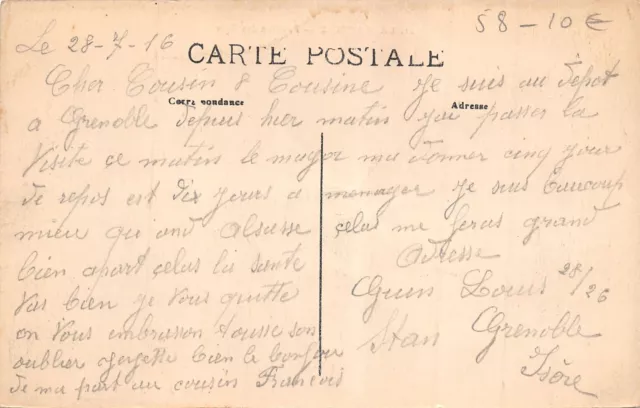 58-10€
Le 28-7-16
CARTE POSTALE
Cher Cousin & Cousine je suis au depot
Correspondance
Adresse
a Grenoble depuis hier matin jai passer la
Visite ce matin le mayor ma donner cinq jour
de repos est dix jours a menager je suis beaucoup
mieu qu'and Alsasse çelas me feras grand
bien apart çelas la sante
Vas bien je Vous quitte
en Vous embrasson tousse son
oublier Jorgette bien le bonjour
de ma part au cousin Francois
Adresse
Louis 28/26
Grenoble
Isère